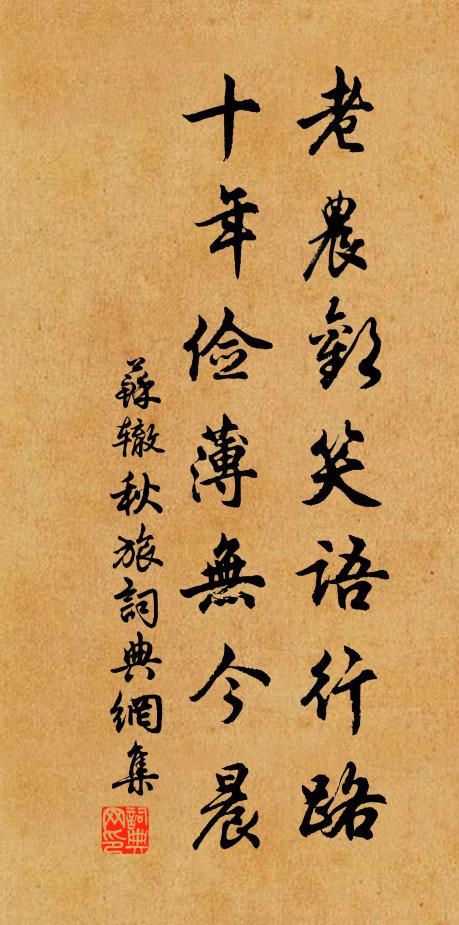 老農歡笑語行路
十年儉薄無今晨
蘇轍秋旅詞典網集
詞典网印